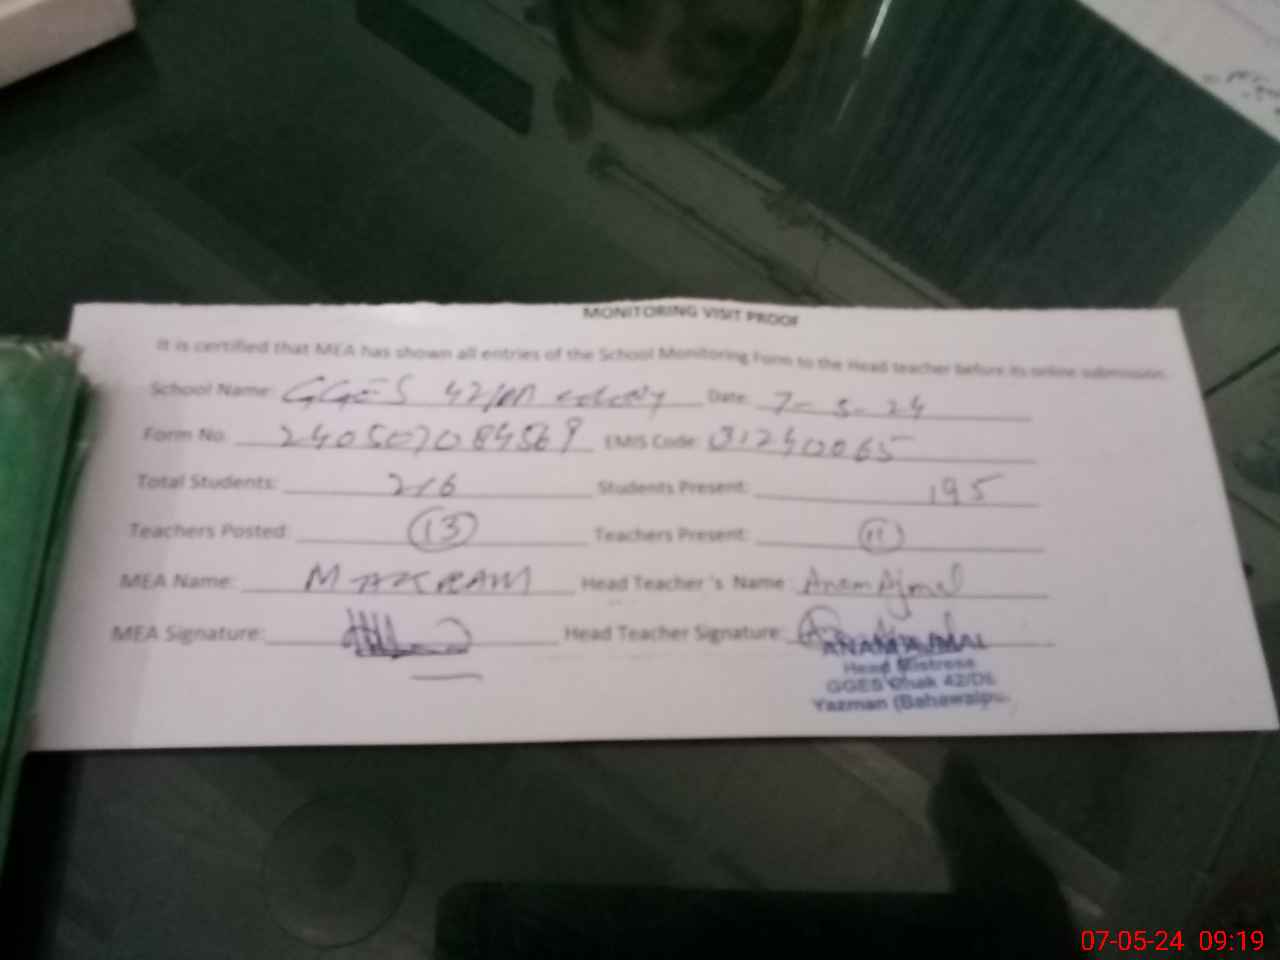 MONITORING VISIT PROOF
It is certified that MEA has shown all entries of the School Monitoring Form to the Head teacher before its online submission.
School Name: GGES 42/ Date: 7-5-24
Form No. 240507084569 EMIS Code: 31240065
Total Students: 216 Students Present: 195
Teachers Posted: 13 Teachers Present: 11
MEA Name: M AKRAM Head Teacher's Name: Anam Ajmal
MEA Signature: Head Teacher Signature:
ANAM AJMAL
Head Mistress
GGES Chak 42/DB
Yazman (Bahawalpur
07-05-24 09:19